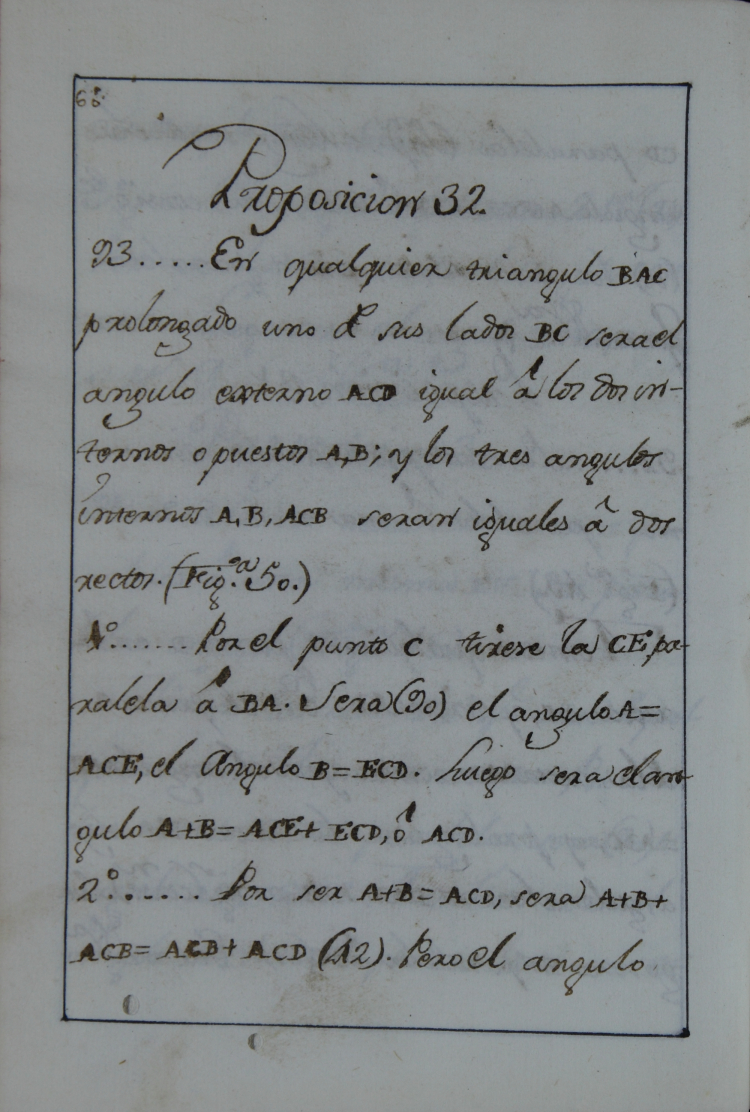 Proposicion 32.
93.....En qualquier triangulo BAC
prolongado uno de sus lados BC sera el
angulo externo ACD igual â los dos in-
ternos opuestos A,B; y los tres angulos
internos A, B, ACB seran iguales â dos
rectos. (Fig.ª 50.)
1º....... Por el punto C tirese la CE, pa-
ralela â BA. Sera (90) el angulo A=
ACE, el Angulo B=ECD. Luego sera el an-
gulo A+B= ACE+ ECD, ô ACD.
2º....... Por ser A+B= ACD, sera A+B+
ACB= ACB+ ACD (12). Pero el angulo